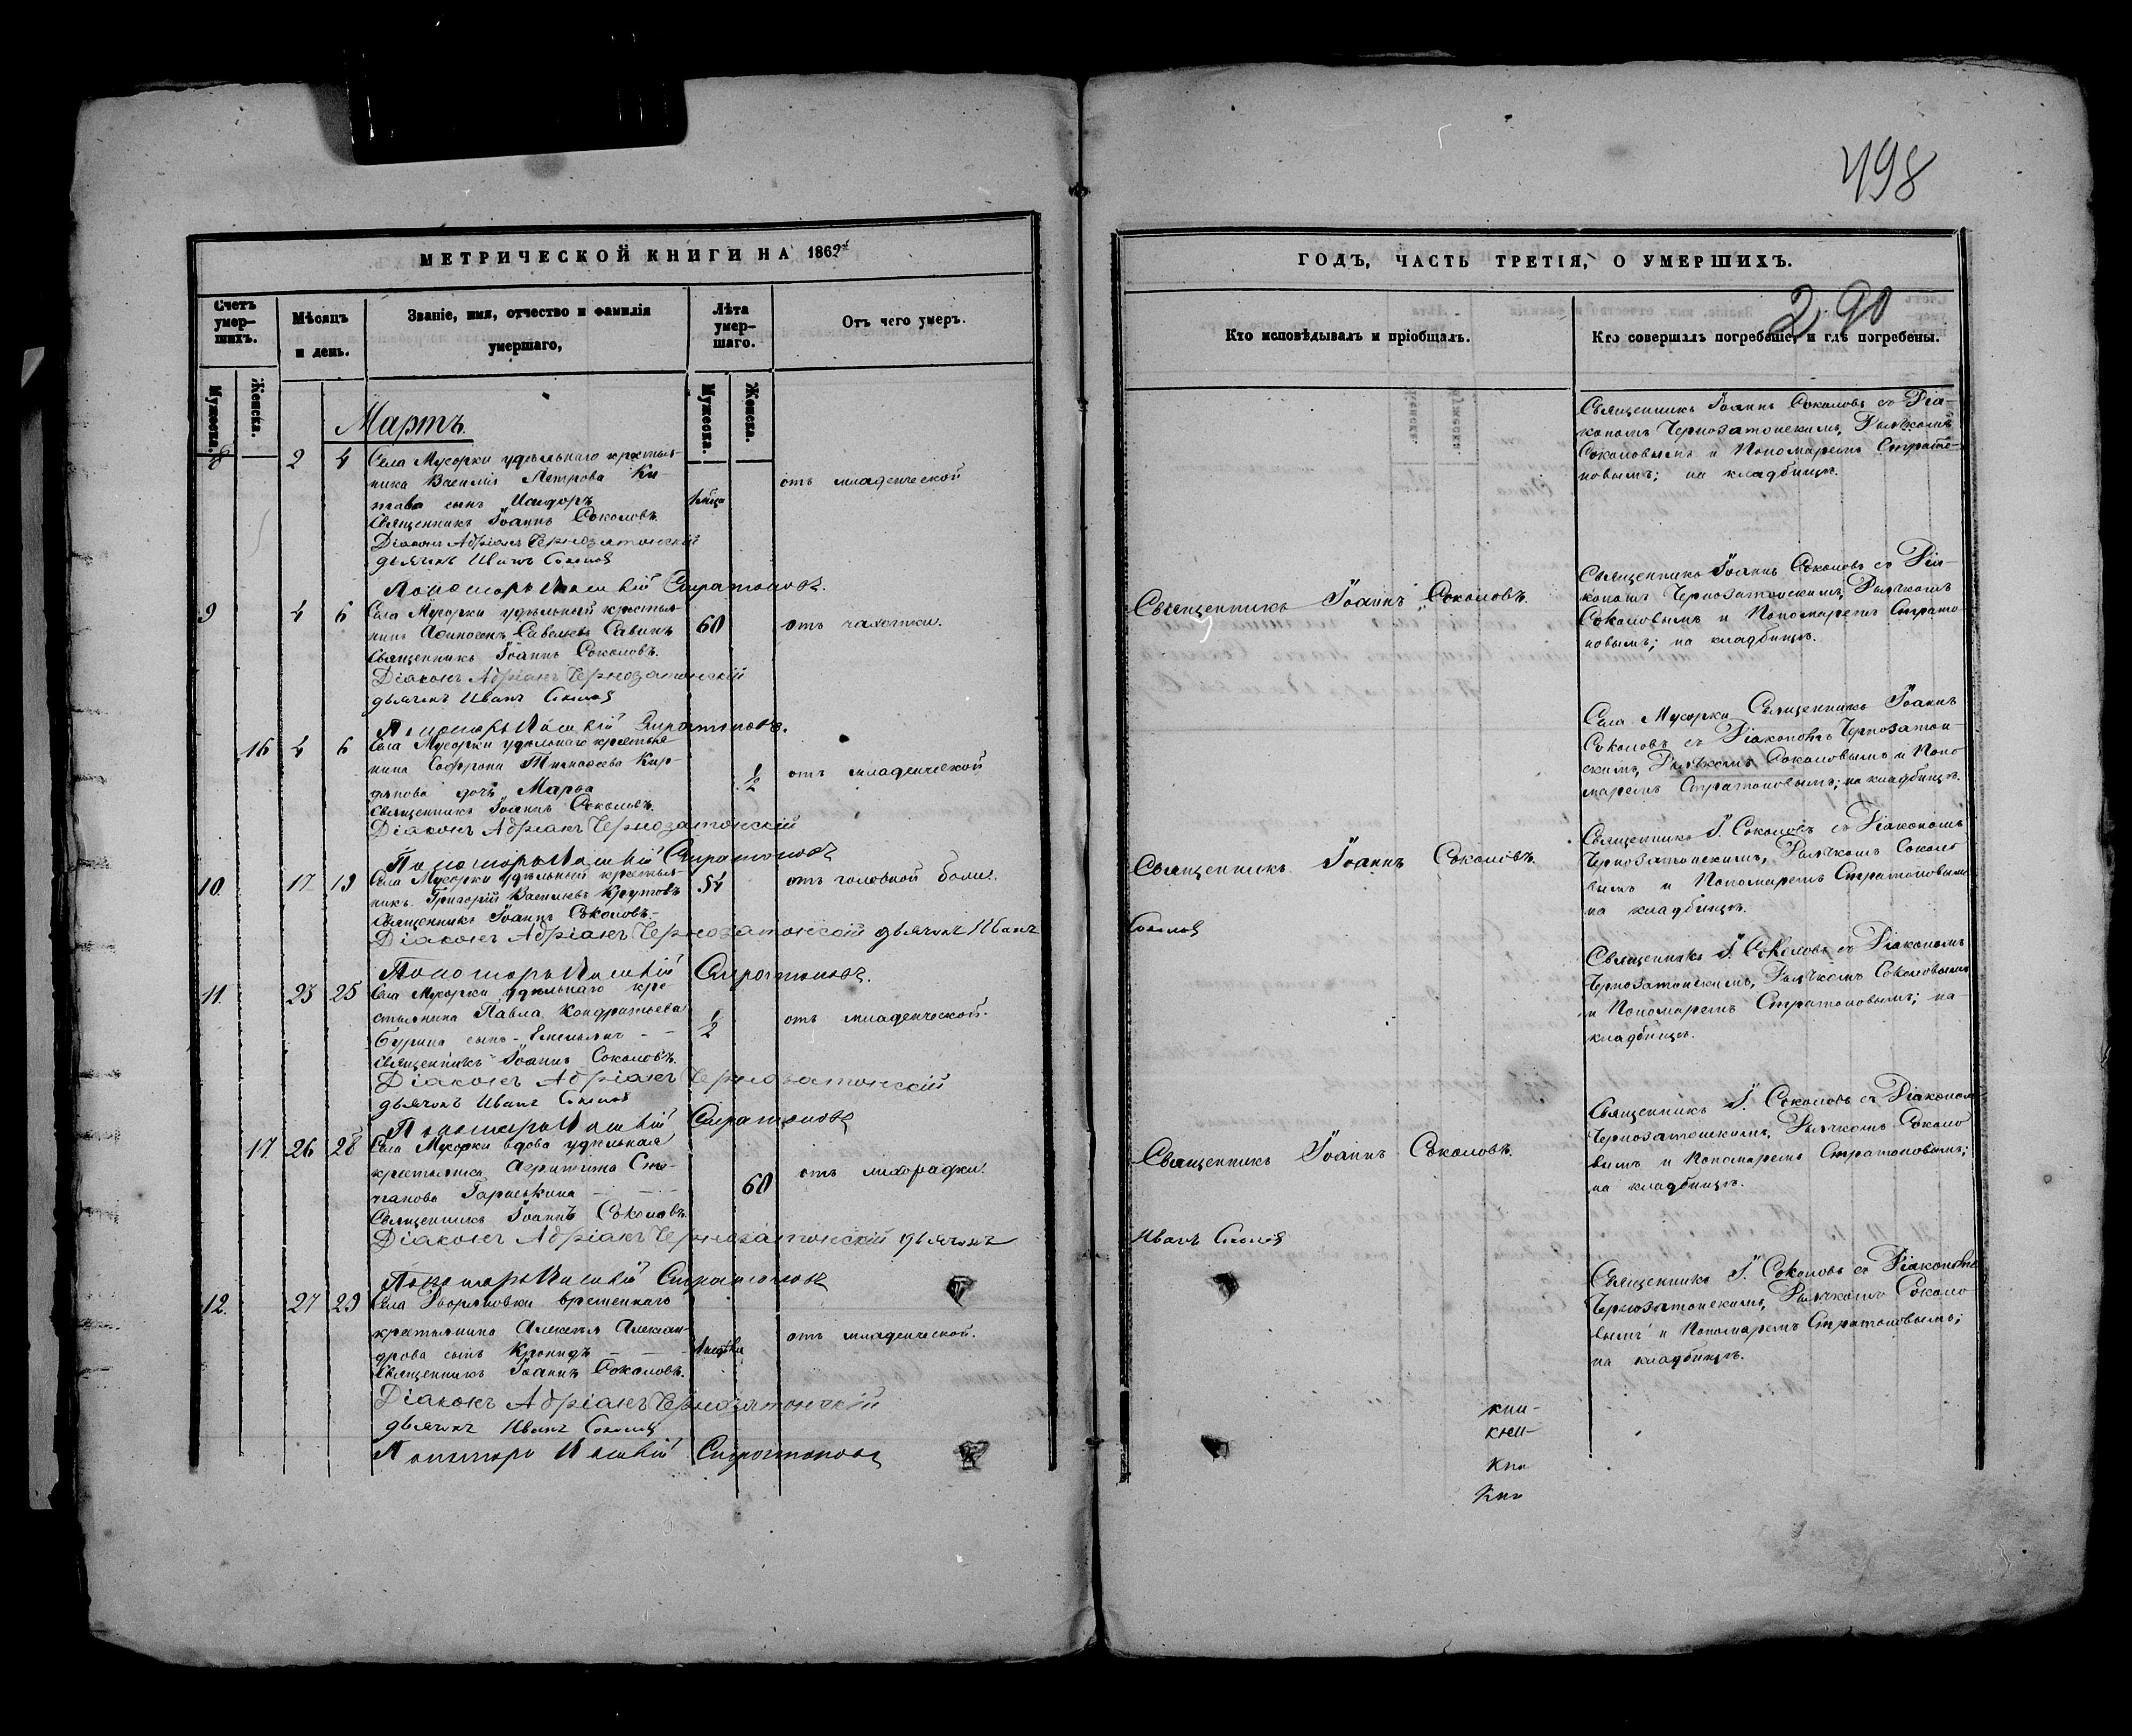 498
МЕТРИЧЕСКОЙ КНИГИ НА 1862й
Счетъ умер-шихъ.
Мѣсяцъ и день.
Званіе, имя, отчество и фамилія умершаго,
Лѣта умер-шаго.
Отъ чего умеръ.
Мужеска.
Женска.
Мужеска.
Женска.
Мартъ
8 2 4 Села Мусорки удѣльнаго крестья-
нина Василія Петрова Ки-
това сынъ Исидоръ 1 мѣца отъ младенческой
Священникъ Іоаннъ Соколовъ.
Діаконъ Адріанъ Чернозатонскій
дьячекъ Иванъ Соколов
Пономарь Стратоновъ.
9 4 6 Села Мусорки удѣльный крестья-
нинъ Савельевъ Савинъ 60 отъ чахотки.
Священникъ Іоаннъ Соколовъ.
Діаконъ Адріанъ Чернозатонскій
дьячекъ Иванъ Соколов
Пономарь Стратоновъ.
16 4 6 Села Мусорки удѣльнаго крестья-
нина Софрона Тимофеева Кир-
дянова дочь Марѳа 1/2 отъ младенческой
Священникъ Іоаннъ Соколовъ.
Діаконъ Адріанъ Чернозатонскій
Пономарь Стратоновъ
10. 17 19 Села Мусорки удѣльный крестья-
нинъ Григорій Васильевъ Крутовъ 54 отъ головной боли.
Священникъ Іоаннъ Соколовъ.
Діаконъ Адріанъ Чернозатонскій дьячекъ Иванъ
Пономарь Стратоновъ.
11. 23 25 Села Мусорки удѣльнаго кре-
стьянина Павла Кондратьева
Бурина сынъ Емельянъ 1/2 отъ младенческой.
Священникъ Іоаннъ Соколовъ.
Діаконъ Адріанъ Чернозатонскій
дьячекъ Иванъ Соколов
Пономарь Стратоновъ
17. 26 28 Села Мусорки вдова удѣльная
крестьянка Агрипина Сте-
панова 60 отъ лихорадки.
Священникъ Іоаннъ Соколовъ.
Діаконъ Адріанъ Чернозатонскій дьячекъ
Пономарь Стратоновъ
12. 27 29 Села Дворяновки временнаго
крестьянина Алексѣя Алексан-
дрова сынъ Кронидъ отъ младенческой.
Священникъ Іоаннъ Соколовъ.
Діаконъ Адріанъ Чернозатонскій
дьячекъ Иванъ Соколов
Пономарь Стратоновъ
ГОДЪ, ЧАСТЬ ТРЕТІЯ, О УМЕРШИХЪ.
290
Кто исповѣдывалъ и пріобщалъ.
Кто совершалъ погребеніе, и гдѣ погребены.
Священникъ Іоаннъ Соколовъ съ Діа-
кономъ Чернозатонскимъ, Дьячкомъ
Соколовымъ и Пономаремъ Страто-
новымъ; на кладбищѣ.
Священникъ Іоаннъ Соколовъ.
Священникъ Іоаннъ Соколовъ съ Діа-
кономъ Чернозатонскимъ, Дьячкомъ
Соколовымъ и Пономаремъ Страто-
новымъ; на кладбищѣ.
Села Мусорки Священникъ Іоаннъ
Соколовъ съ Діакономъ Чернозатон-
скимъ, Дьячкомъ Соколовымъ и Поно-
маремъ Стратоновымъ; на кладбищѣ.
Священникъ Іоаннъ Соколовъ.
Соколов
Священникъ І. Соколовъ съ Діакономъ
Чернозатонскимъ, Дьячкомъ Соколо-
вымъ и Пономаремъ Стратоновымъ
на кладбищѣ.
Священникъ І. Соколовъ съ Діакономъ
Чернозатонскимъ, Дьячкомъ Соколовымъ
и Пономаремъ Стратоновымъ; на-
кладбищѣ.
Священникъ Іоаннъ Соколовъ.
Иванъ Соколов
Священникъ І. Соколовъ съ Діакономъ
Чернозатонскимъ, Дьячкомъ Соколо-
вымъ и Пономаремъ Стратоновымъ;
на кладбищѣ.
Священникъ І. Соколовъ съ Діакономъ
Чернозатонскимъ, Дьячкомъ Соколо-
вымъ и Пономаремъ Стратоновымъ;
на кладбищѣ.
кни-
кни-
Кни
Кни